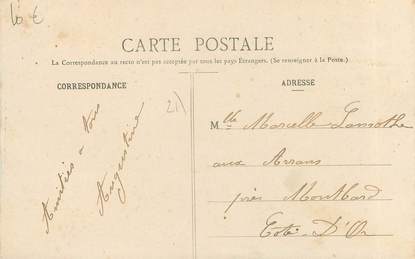 10 €
CARTE POSTALE
La Correspondance au recto n'est pas acceptée par tous les pays Étrangers. (Se renseigner à la Poste.)
CORRESPONDANCE
ADRESSE
21)
Amitiés à tous
Augustine
Mlle Marcelle Lamothe
aux Arrans
près Montbard
Côte D'Or